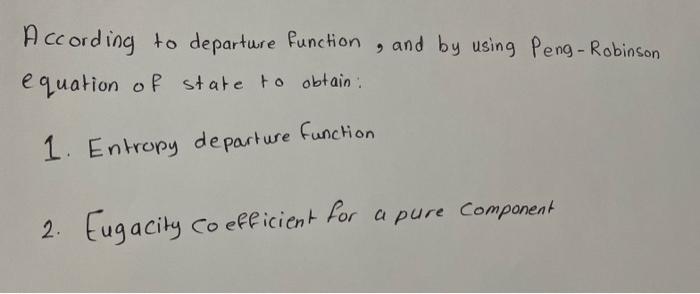 According to departure function , and by using Peng-Robinson
equation of state to obtain:
1. Entropy departure function
2. Fugacity coefficient for a pure component